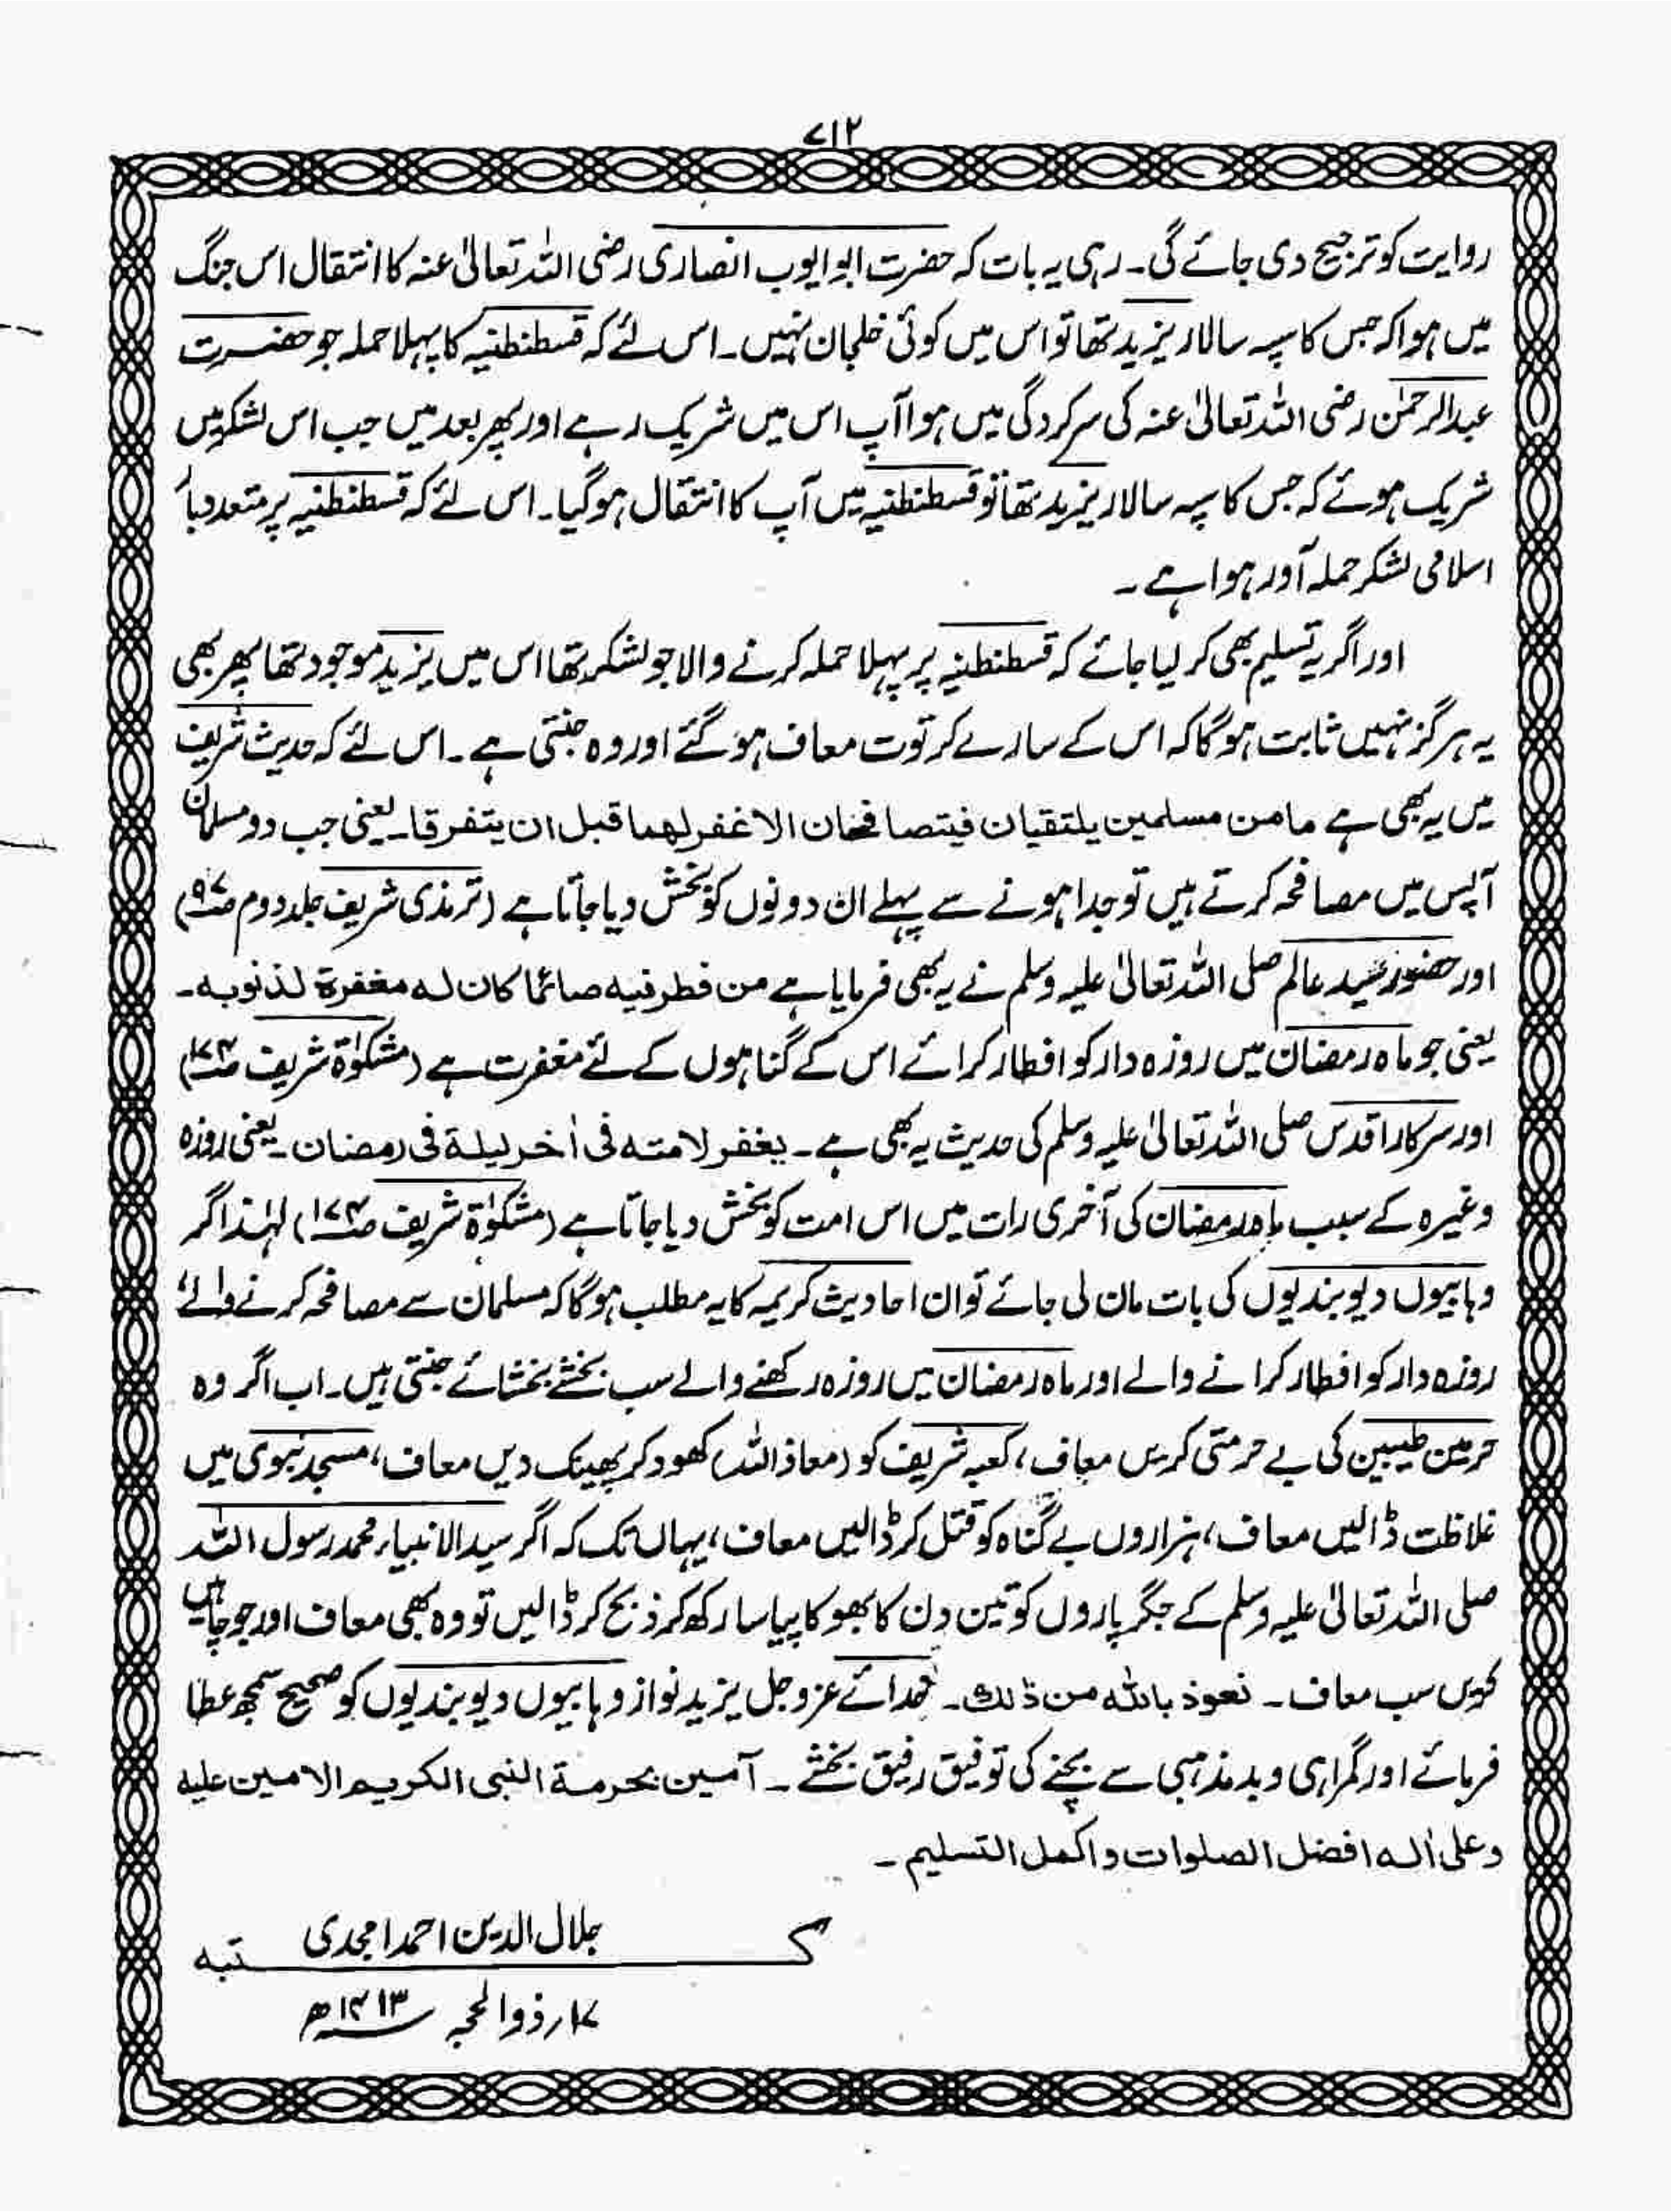 ۷۱۲
روایت کو ترجیح دی جائے گی۔ رہی یہ بات کہ حضرت ابو ایوب انصاری رضی اللہ تعالیٰ عنہ کا انتقال اس جنگ
میں ہوا کہ جس کا سپہ سالار یزید تھا تو اس میں کوئی خلجان نہیں۔ اس لئے کہ قسطنطنیہ کا پہلا حملہ جو حضرت
عبدالرحمٰن رضی اللہ تعالیٰ عنہ کی سرکردگی میں ہوا آپ اس میں شریک رہے اور پھر بعد میں جب اس لشکر میں
شریک ہوئے کہ جس کا سپہ سالار یزید تھا تو قسطنطنیہ میں آپ کا انتقال ہوگیا۔ اس لئے کہ قسطنطنیہ پر متعدد بار
اسلامی لشکر حملہ آور ہوا ہے۔
اور اگر یہ تسلیم بھی کر لیا جائے کہ قسطنطنیہ پر پہلا حملہ کرنے والا جو لشکر تھا اس میں یزید موجود تھا پھر بھی
یہ ہرگز نہیں ثابت ہوگا کہ اس کے سارے کرتوت معاف ہوگئے اور وہ جنتی ہے۔ اس لئے کہ حدیث شریف
میں یہ بھی ہے مامن مسلمین یلتقیان فیتصافحان الا غفر لهما قبل ان یتفرقا۔ یعنی جب دو مسلمان
آپس میں مصافحہ کرتے ہیں تو جدا ہونے سے پہلے ان دونوں کو بخش دیا جاتا ہے (ترمذی شریف جلد دوم ص۹۷)
اور حضور سید عالم صلی اللہ تعالیٰ علیہ وسلم نے یہ بھی فرمایا ہے من فطر فیه صائما کان له مغفرة لذنوبه۔
یعنی جو ماہ رمضان میں روزہ دار کو افطار کرائے اس کے گناہوں کے لئے مغفرت ہے (مشکوٰۃ شریف ص۱۷۴)
اور سرکار اقدس صلی اللہ تعالیٰ علیہ وسلم کی حدیث یہ بھی ہے۔ یغفر لامته فی اٰخر لیلة فی رمضان۔ یعنی روزہ
وغیرہ کے سبب ماہ رمضان کی آخری رات میں اس امت کو بخش دیا جاتا ہے (مشکوٰۃ شریف ص۱۷۴) لہٰذا اگر
وہابیوں دیوبندیوں کی بات مان لی جائے تو ان احادیث کریمہ کا یہ مطلب ہوگا کہ مسلمان سے مصافحہ کرنے والے،
روزہ دار کو افطار کرانے والے اور ماہ رمضان میں روزہ رکھنے والے سب بخشے بخشائے جنتی ہیں۔ اب اگر وہ
حرمین طیبین کی بے حرمتی کریں معاف، کعبہ شریف کو (معاذ اللہ) کھود کر پھینک دیں معاف، مسجد نبوی میں
غلاظت ڈالیں معاف، ہزاروں بے گناہ کو قتل کر ڈالیں معاف، یہاں تک کہ اگر سید الانبیاء محمد رسول اللہ
صلی اللہ تعالیٰ علیہ وسلم کے جگر پاروں کو تین دن کا بھوکا پیاسا رکھ کر ذبح کر ڈالیں تو وہ بھی معاف اور جو چاہیں
کریں سب معاف۔ نعوذ باللہ من ذٰلك۔ خدائے عزوجل یزید نواز وہابیوں دیوبندیوں کو صحیح سمجھ عطا
فرمائے اور گمراہی و بدمذہبی سے بچنے کی توفیق رفیق بخشے۔ آمین بحرمة النبی الکریم الامین علیه
وعلی اٰله افضل الصلوات واکمل التسلیم۔
جلال الدین احمد امجدی
کتبه
۱۷؍ ذوالحجہ ۱۴۱۳ھ